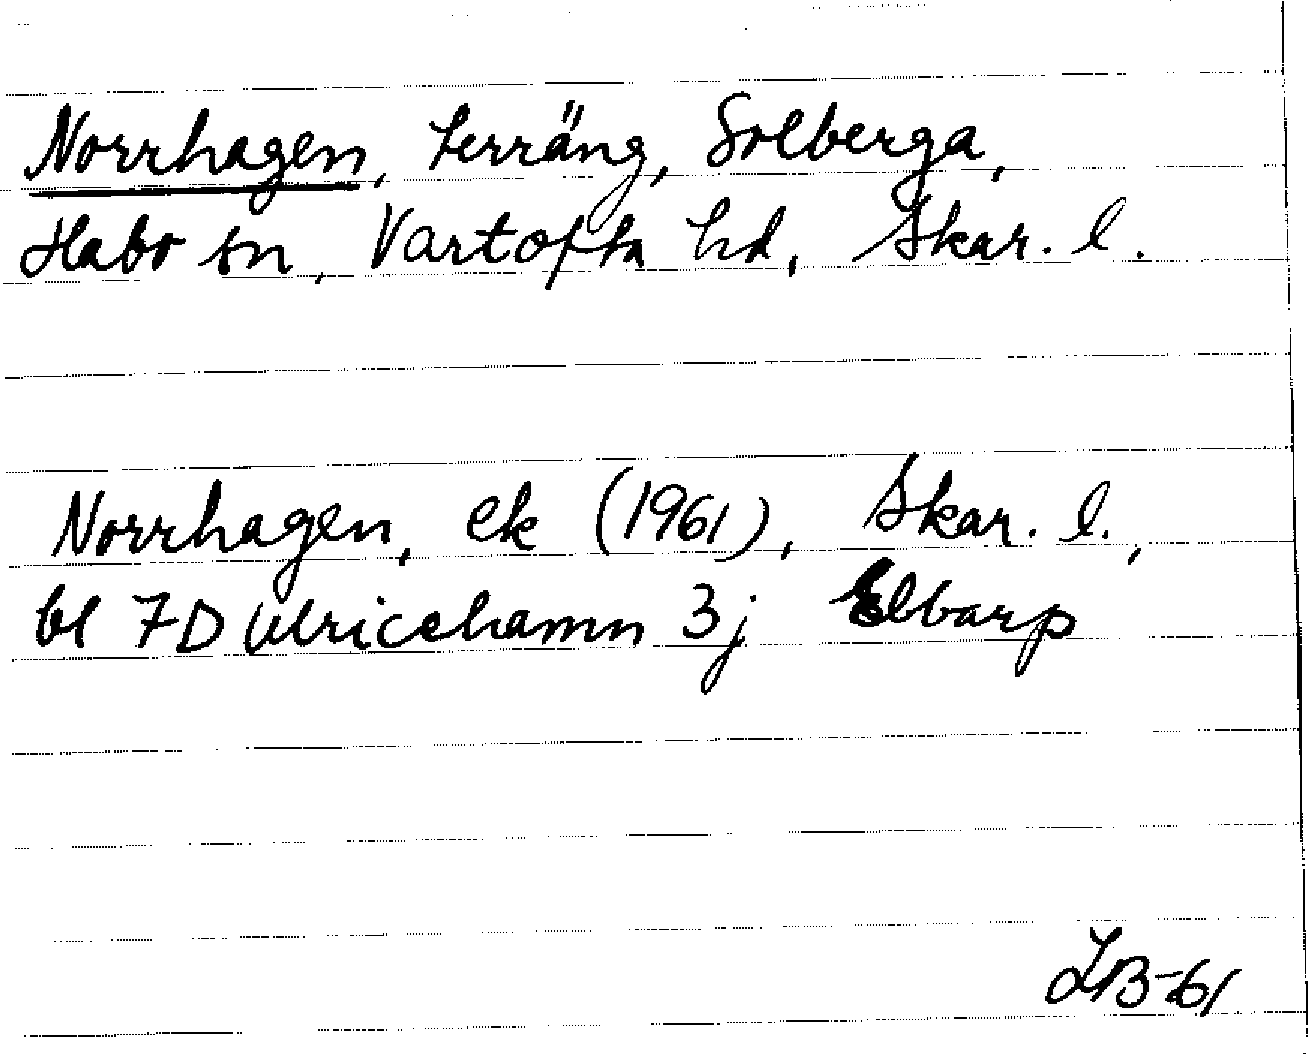 Norrhagen, terräng, Solberga,
Habo sn, Vartofta hd, Skar. l.
Norrhagen, ek (1961), Skar. l.,
bl 7D Ulricehamn 3j Ebbarp
LB-61